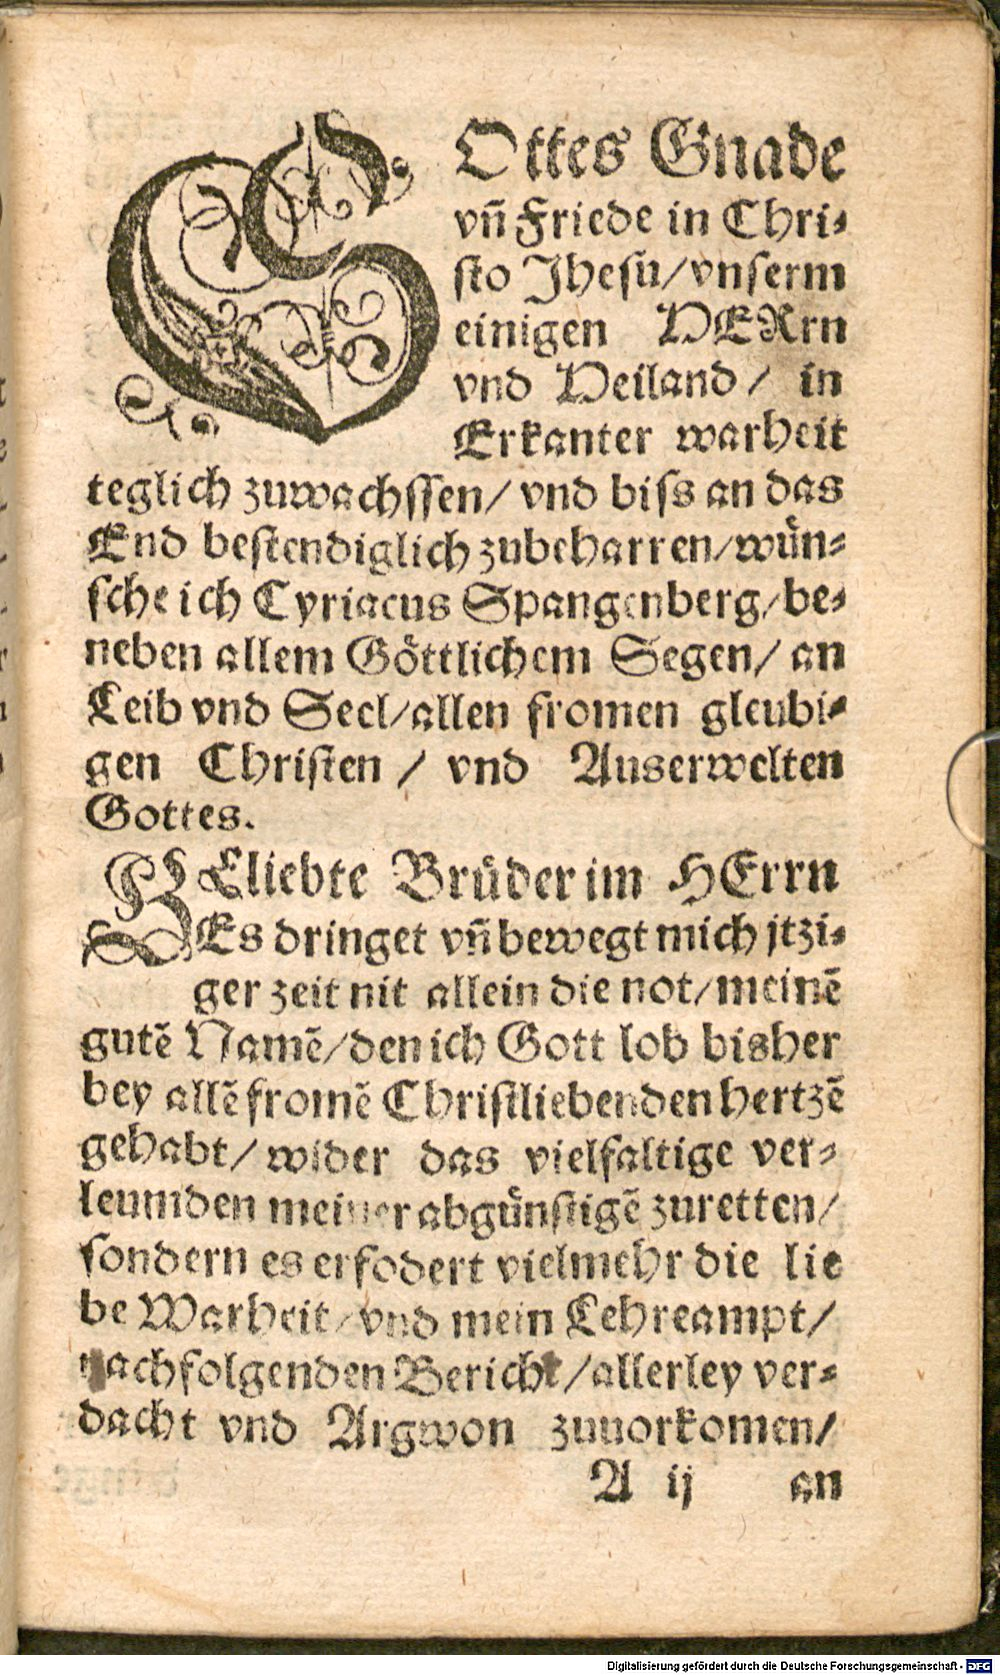 GOttes Gnade
vn̄ Friede in Chri-
sto Jhesu/vnserm
einigen HERrn
vnd Heiland/ in
Erkanter warheit
teglich zuwachssen/ vnd biss an das
End bestendiglich zubeharren/wün-
sche ich Cyriacus Spangenberg/be-
neben allem Göttlichem Segen/ an
Leib vnd Seel/allen fromen gleubi-
gen Christen / vnd Auserwelten
Gottes.
GEliebte Brüder im HErrn
Es dringet vn̄ bewegt mich jtzi-
ger zeit nit allein die not/meinē
gutē Namē/den ich Gott lob bisher
bey allē fromē Christliebenden hertzē
gehabt/ wider das vielfaltige ver-
leumden meiner abgünstigē zuretten/
sondern es erfodert vielmehr die lie
be Warheit/vnd mein Lehreampt/
nachfolgenden Bericht/allerley ver-
dacht vnd Argwon zuuorkomen/
A ij an
Digitalisierung gefördert durch die Deutsche Forschungsgemeinschaft - DFG